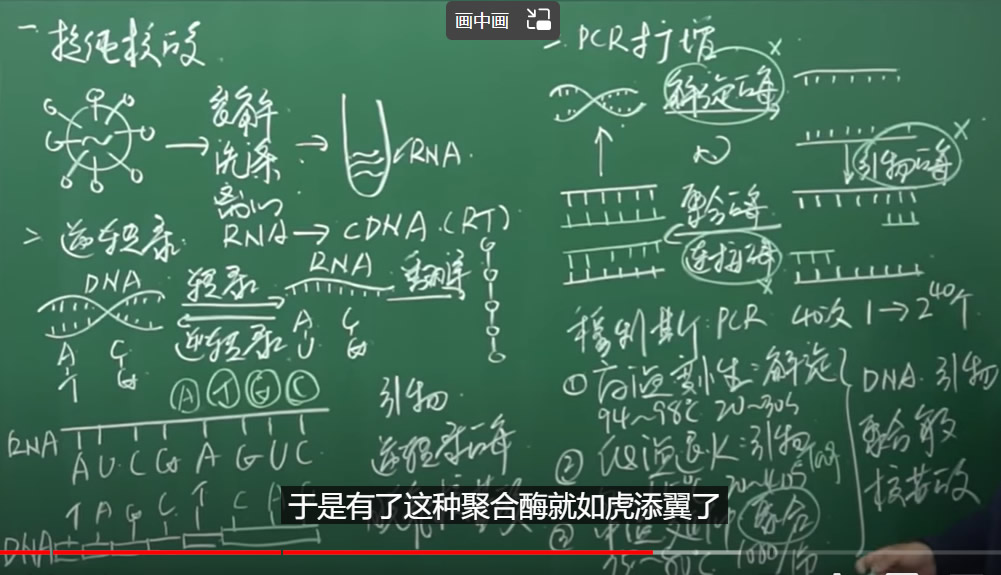 画中画
一 提纯核酸
裂解
洗涤
RNA
RNA → cDNA (RT)
> 逆转录
DNA
转录
逆转录
RNA
翻译
A C
T G
A C
U G
A T G C
引物
逆转录酶
RNA
A U C G A G U C
T A G C T C A G
DNA
二 PCR扩增
解旋酶
引物酶
聚合酶
连接酶
穆利斯 PCR 40次 1→2⁴⁰个
① 高温变性:解旋
94~98℃ 20~30s
② 低温退火:引物
③
聚合
DNA 引物
聚合酶
核苷酸
于是有了这种聚合酶就如虎添翼了